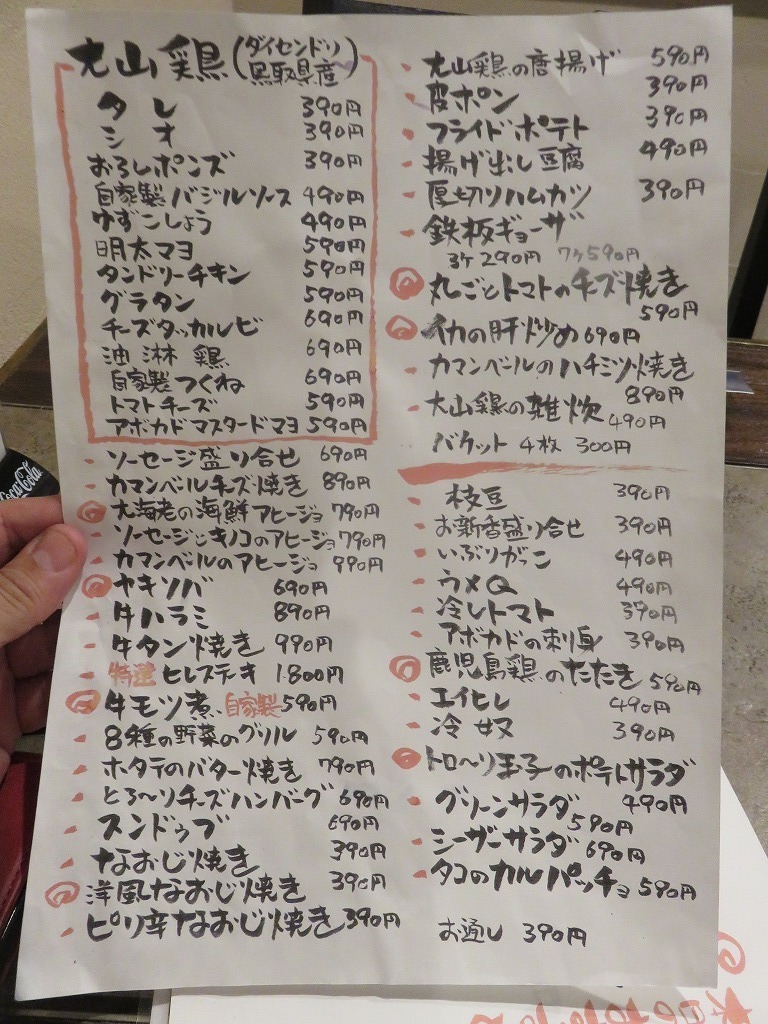 大山鶏(ダイセンドリ 鳥取県産)
タレ 390円
シオ 390円
おろしポンズ 390円
自家製バジルソース 490円
ゆずこしょう 490円
明太マヨ 590円
タンドリーチキン 590円
グラタン 590円
チーズタッカルビ 690円
油淋鶏 690円
自家製つくね 690円
トマトチーズ 590円
アボカドマスタードマヨ 590円
ソーセージ盛り合せ 690円
カマンベールチーズ焼き 890円
大海老の海鮮アヒージョ 790円
ソーセージときのコのアヒージョ 790円
カマンベールのアヒージョ 990円
ヤキソバ 690円
牛ハラミ 890円
牛タン焼き 990円
特選ヒレステーキ 1.800円
牛モツ煮.自家製 590円
8種の野菜のグリル 590円
ホタテのバター焼き 790円
とろ〜りチーズハンバーグ 690円
スンドゥブ 690円
なおじ焼き 390円
洋風なおじ焼き 390円
ピリ辛なおじ焼き 390円
大山鶏の唐揚げ 590円
皮ポン 390円
フライドポテト 390円
揚げ出し豆腐 490円
厚切りハムカツ 390円
鉄板ギョーザ
3ケ290円 7ケ590円
丸ごとトマトのチーズ焼き
590円
イカの肝炒め 690円
カマンベールのハチミツ焼き
890円
大山鶏の雑炊 490円
バケット 4枚 300円
枝豆 390円
お新香盛り合せ 390円
いぶりがっこ 490円
ウメQ 490円
冷しトマト 390円
アボカドの刺身 390円
鹿児島鶏のたたき 590円
エイヒレ 490円
冷奴 390円
トロ〜リ玉子のポテトサラダ
490円
グリーンサラダ 590円
シーザーサラダ 690円
タコのカルパッチョ 590円
お通し 390円
Coca-Cola